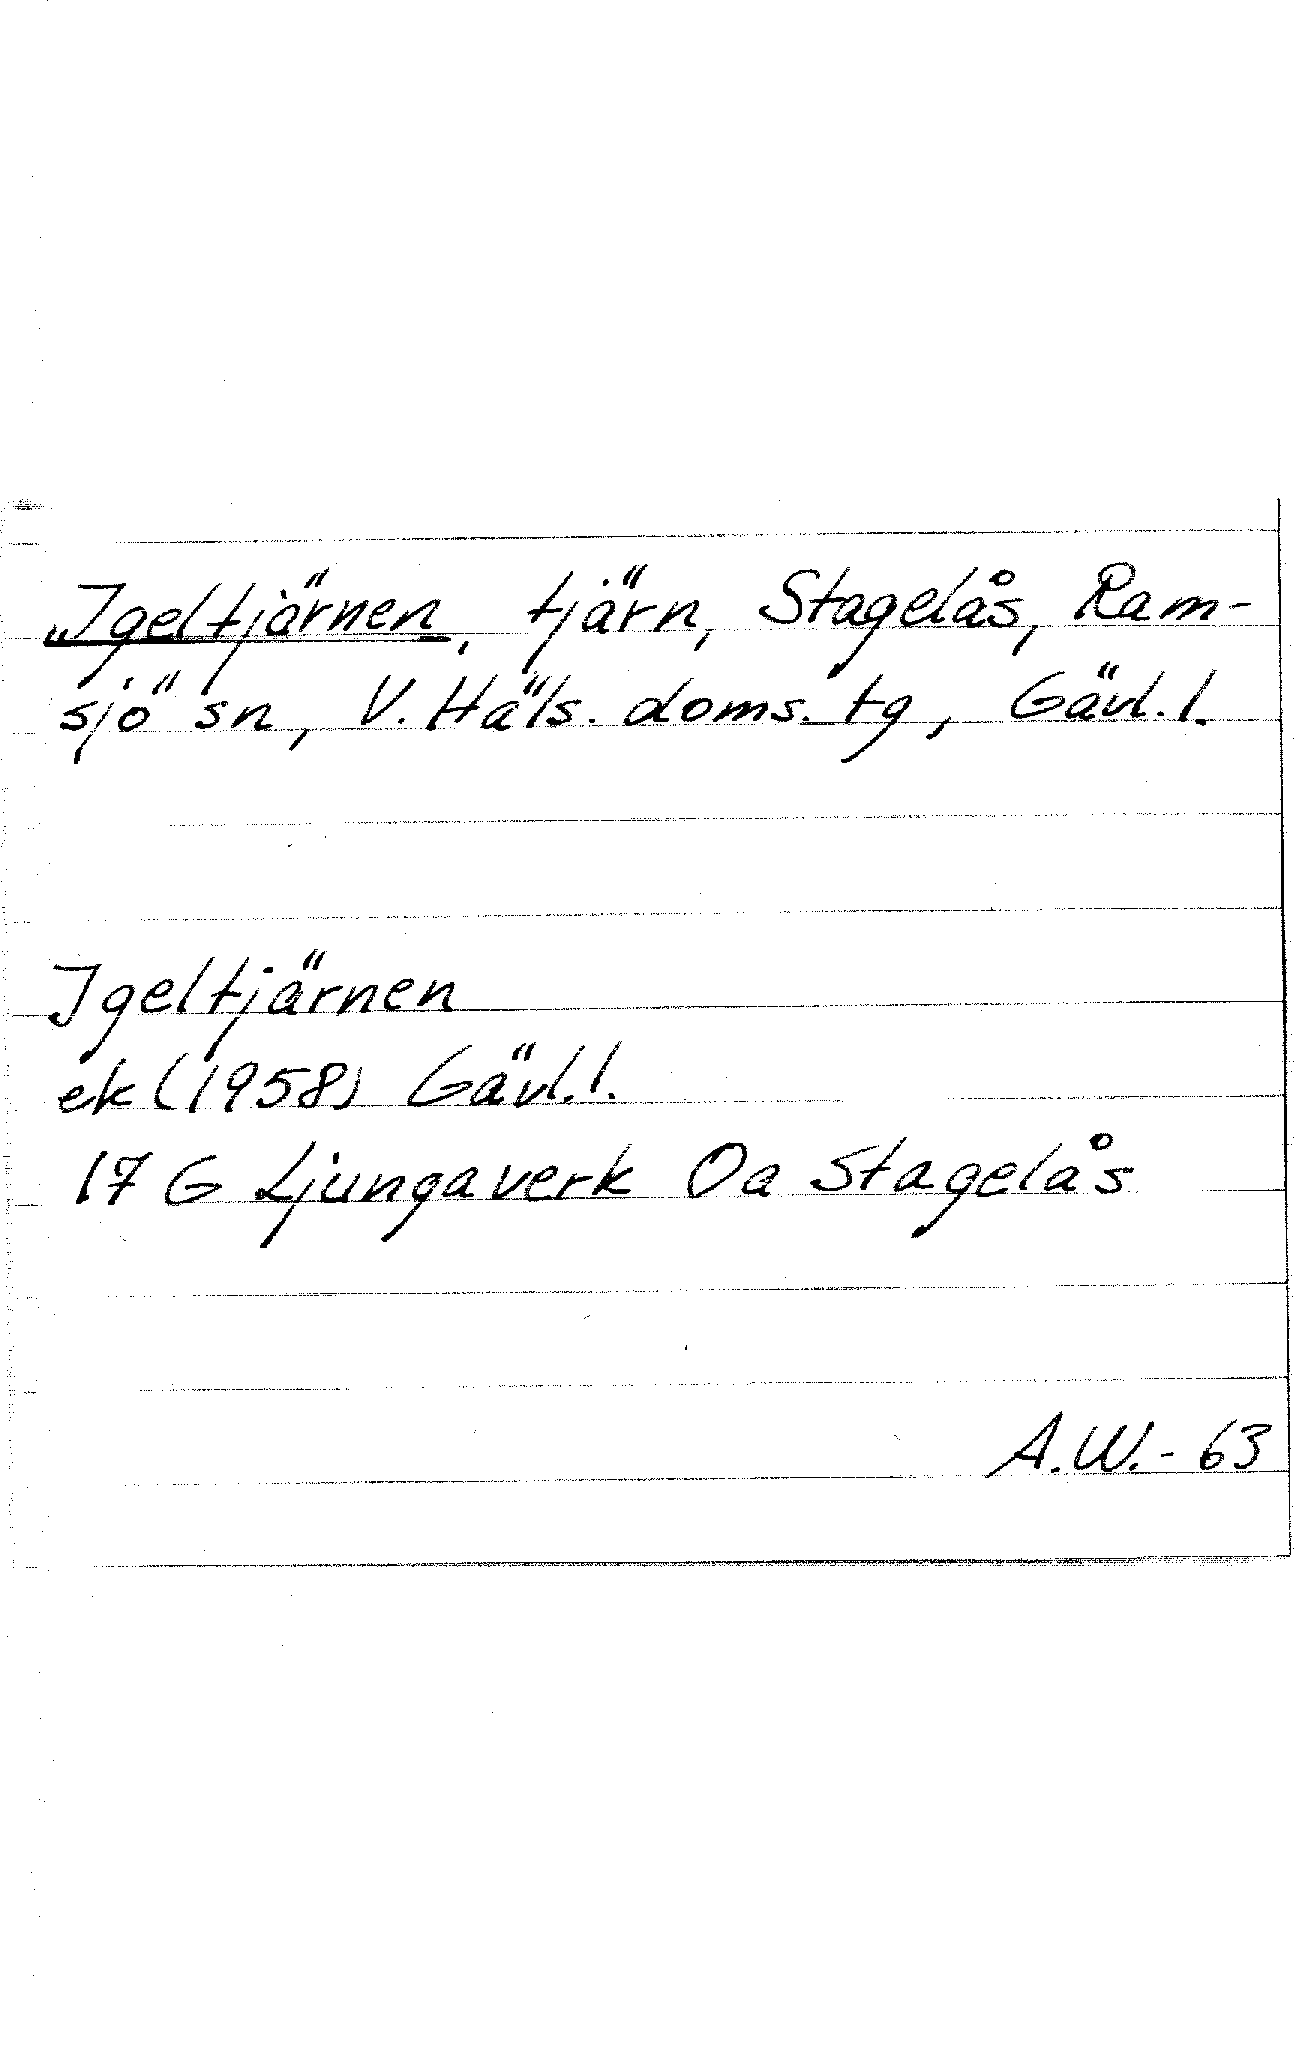 Igeltjärnen, tjärn, Stagelås, Ram-
sjö sn, V. Häls. doms. tg, Gävl. l.
Igeltjärnen
ek (1958) Gävl. l.
17 G Ljungaverk Oa Stagelås
A.W. - 63